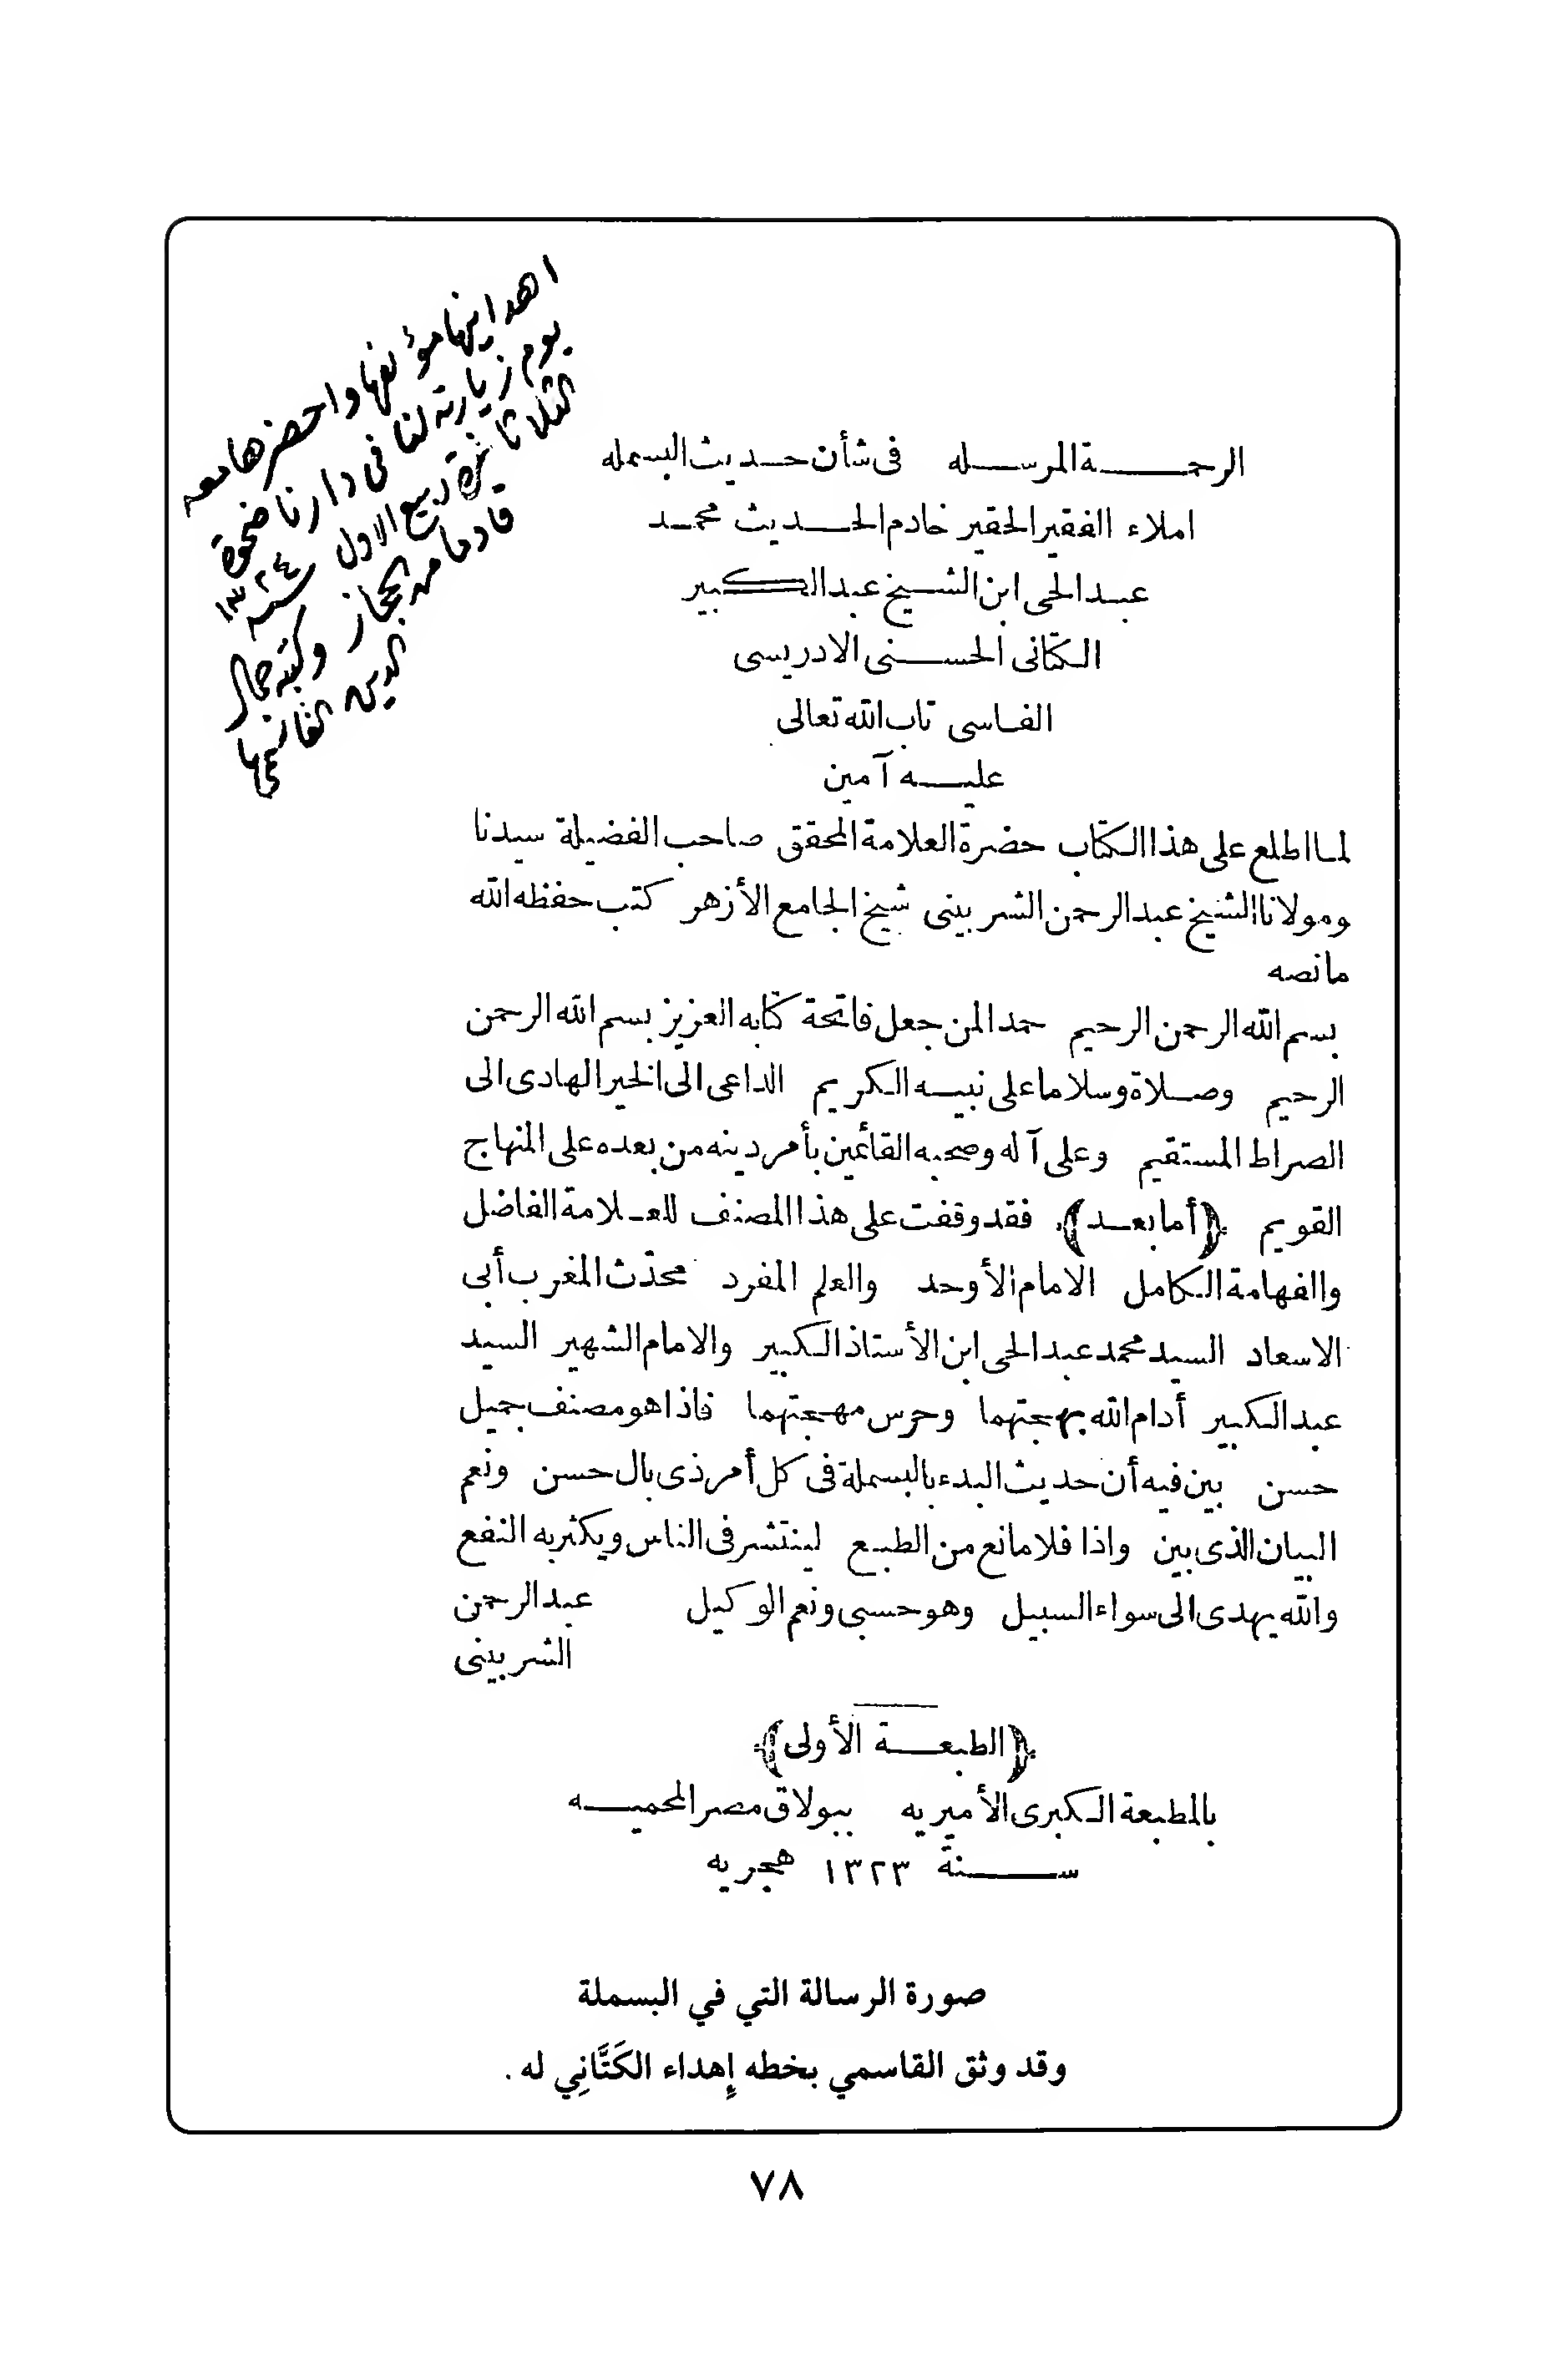 اهدانيها مؤلفها واحضرها معه
يوم زيارته لنا في دارنا ضحوة
الثلاثا غرة ربيع الاول سنة ١٣٢٤
قادما من الحجاز وكتبه جمال
الدين القاسمي
الرحمة المرسله في شأن حديث البسمله
املاء الفقير الحقير خادم الحديث محمد
عبد الحى ابن الشيخ عبد الكبير
الكتانى الحسنى الادريسى
الفاسى تاب الله تعالى
عليه آمين
لما اطلع على هذا الكتاب حضرة العلامة المحقق صاحب الفضيلة سيدنا
ومولانا الشيخ عبد الرحمن الشربينى شيخ الجامع الأزهر كتب حفظه الله
مانصه
بسم الله الرحمن الرحيم حمدا لمن جعل فاتحة كتابه العزيز بسم الله الرحمن
الرحيم وصلاة وسلاما على نبيه الكريم الداعى الى الخير الهادى الى
الصراط المستقيم وعلى آله وصحبه القائمين بأمر دينه من بعده على المنهاج
القويم ﴿أما بعد﴾ فقد وقفت على هذا المصنف للعلامة الفاضل
والفهامة الكامل الامام الأوحد والعلم المفرد محدّث المغرب أبى
الاسعاد السيد محمد عبد الحى ابن الأستاذ الكبير والامام الشهير السيد
عبد الكبير أدام الله بهجتهما وحرس مهجتهما فاذا هو مصنف جميل
حسن بين فيه أن حديث البدء بالبسملة فى كل أمر ذى بال حسن ونعم
البيان الذى بين واذا فلا مانع من الطبع لينتشر فى الناس ويكثر به النفع
والله يهدى الى سواء السبيل وهو حسبى ونعم الوكيل عبد الرحمن
الشربينى
﴿الطبعة الأولى﴾
بالمطبعة الكبرى الأميريه ببولاق مصر المحميه
سنة ١٣٢٣ هجريه
صورة الرسالة التي في البسملة
وقد وثق القاسمي بخطه إهداء الكَتَّانِي له .
٧٨